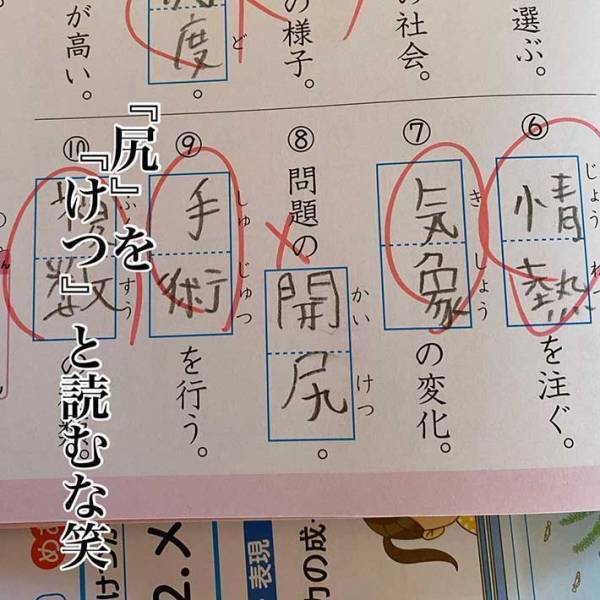 選ぶ。
社会。
の様子。
度
ど
。
が高い。
⑥
情熱
じょうねつ
を注ぐ。
⑦
気象
きしょう
の変化。
⑧
問題の
開尻
かいけつ
。
⑨
手術
しゅじゅつ
を行う。
⑩
数
すう
『尻』を
『けつ』と読むな笑
表現
力の成